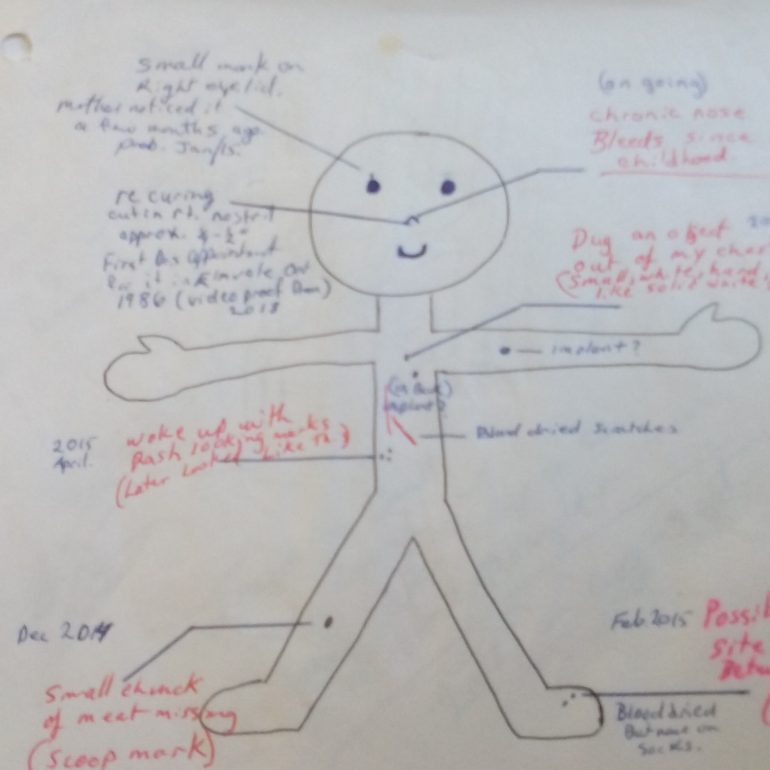 Small mark on
Right eyelid.
mother noticed it
a few months ago
prob. Jan/15.
(on going)
chronic nose
Bleeds since
childhood
re curing
cut in rt. nostril
approx. ¼-½"
First Drs appointment
for it in
1986 (video proof Dom)
2018
Dug an object
out of my
(small, white, hard,
like solid white
implant?
(in Back)
implant?
Blood dried scratches
2015
April.
woke up with
Rash looking marks
(Later Looked Like Th )
Dec 2014
Small chunck
of meat missing
(Scoop mark)
Feb. 2015
site
Blood dried
But none on
Socks.